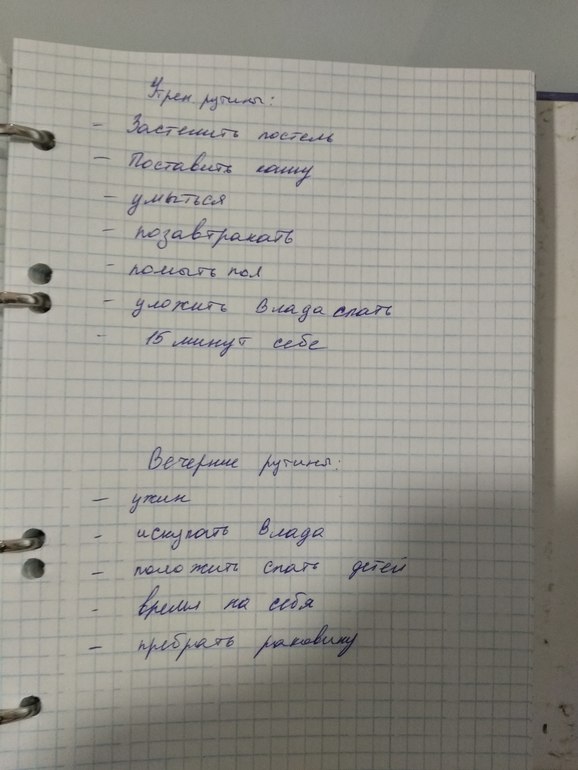 Утрен. рутины:
- Застелить постель
- Поставить кашу
- умыться
- позавтракать
- помыть пол
- уложить Влада спать
- 15 минут себе
Вечерние рутины:
- ужин
- искупать Влада
- положить спать детей
- время на себя
- пребрать раковину